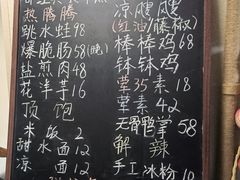 热腾腾
跳水蛙98
爆脆肠58(晚)
盐煎肉48
花洋芋16
顶饱
米饭2
甜水面12
凉面12
凉飕飕
(红油/藤椒)
棒棒鸡68
钵钵鸡
荤35素18
荤素42
无骨鸭掌58
解辣
手工冰粉10